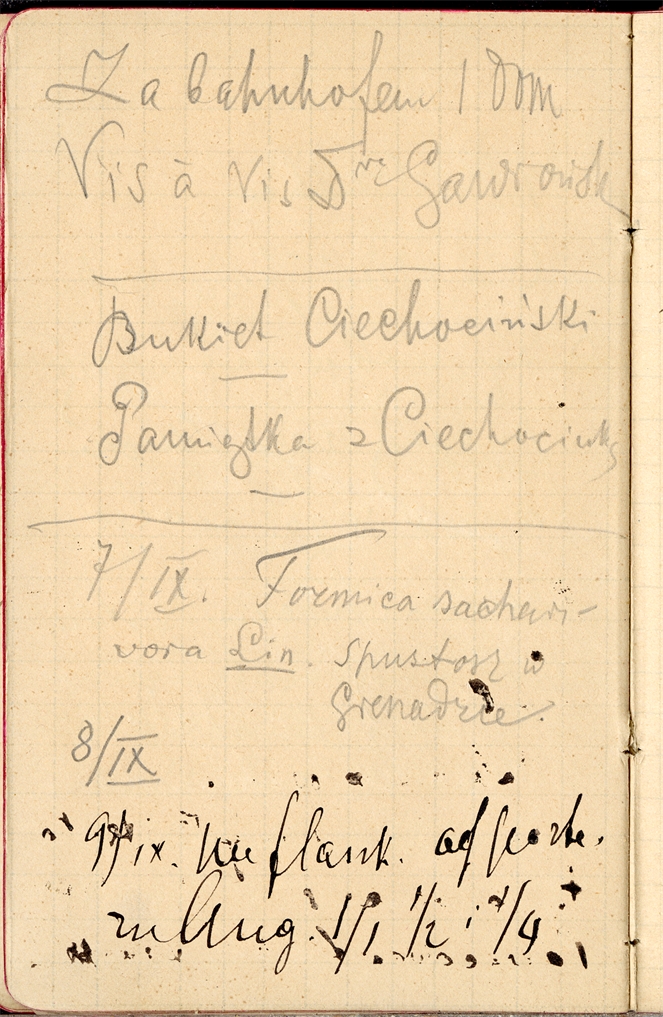 Za bahnhofem 1 dom
Vis à vis Dra Gawrońsk
Bukiet Ciechociński
Pamiątka z Ciechocinka
7/IX. Formica sachari-
vora Lin. Spustosz w
Grenadzie.
8/IX
9/IX. flask.
1/1 1/2 i 1/4